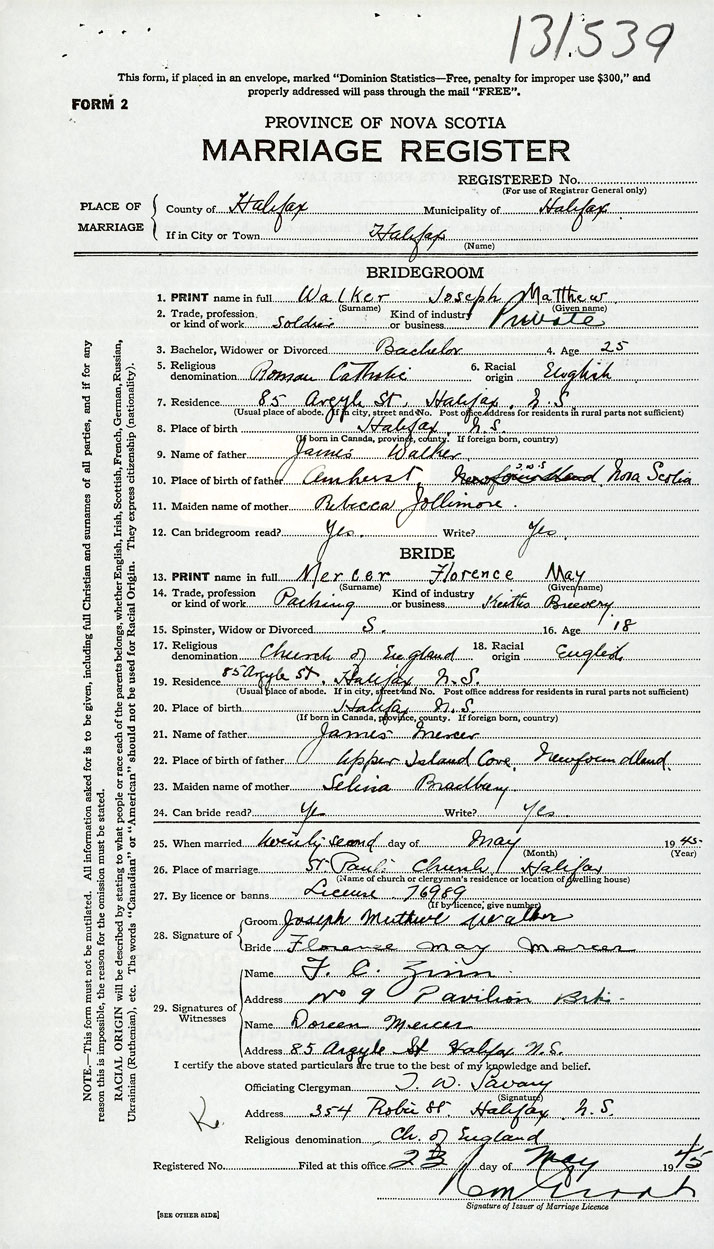 131.539
This form, if placed in an envelope, marked "Dominion Statistics—Free, penalty for improper use $300," and
properly addressed will pass through the mail "FREE".
FORM 2
PROVINCE OF NOVA SCOTIA
MARRIAGE REGISTER
REGISTERED No.
(For use of Registrar General only)
PLACE OF MARRIAGE
County of Halifax Municipality of Halifax
If in City or Town Halifax
(Name)
BRIDEGROOM
1. PRINT name in full Walker Joseph Matthew
(Surname) (Given name)
2. Trade, profession or kind of work Soldier Kind of industry or business Private
3. Bachelor, Widower or Divorced Bachelor 4. Age 25
5. Religious denomination Roman Catholic 6. Racial origin English
7. Residence 85 Argyle St, Halifax, N.S.
(Usual place of abode. If in city, street and No. Post office address for residents in rural parts not sufficient)
8. Place of birth Halifax, N.S.
(If born in Canada, province, county. If foreign born, country)
9. Name of father James Walker
10. Place of birth of father Amherst, Nova Scotia
11. Maiden name of mother Rebecca Jollimore.
12. Can bridegroom read? Yes. Write? Yes.
BRIDE
13. PRINT name in full Mercer Florence May
(Surname) (Given name)
14. Trade, profession or kind of work Packing Kind of industry or business Keiths Brewery
15. Spinster, Widow or Divorced S. 16. Age 18
17. Religious denomination Church of England 18. Racial origin English
19. Residence 85 Argyle St., Halifax N.S.
(Usual place of abode. If in city, street and No. Post office address for residents in rural parts not sufficient)
20. Place of birth Halifax N.S.
(If born in Canada, province, county. If foreign born, country)
21. Name of father James Mercer
22. Place of birth of father Upper Island Cove, Newfoundland.
23. Maiden name of mother Selina Bradbury
24. Can bride read? Yes Write? Yes.
25. When married twenty second day of May 1945
(Month) (Year)
26. Place of marriage St Paul's Church, Halifax
(Name of church or clergyman's residence or location of dwelling house)
27. By licence or banns License 76989
(If by licence, give number)
28. Signature of
Groom Joseph Walker
Bride Florence May Mercer
29. Signatures of Witnesses
Name F. C. Zinn
Address No 9 Pavilion
Name Doreen Mercer
Address 85 Argyle St Halifax N.S.
I certify the above stated particulars are true to the best of my knowledge and belief.
Officiating Clergyman T. W. Savary
(Signature)
Address 354 Robie St. Halifax, N.S.
Religious denomination Ch. of England
Registered No. Filed at this office 23 day of May 1945
Signature of Issuer of Marriage Licence
[SEE OTHER SIDE]
NOTE.—This form must not be mutilated. All information asked for is to be given, including full Christian and surnames of all parties, and if for any
reason this is impossible, the reason for the omission must be stated.
RACIAL ORIGIN will be described by stating to what people or race each of the parents belongs, whether English, Irish, Scottish, French, German, Russian,
Ukrainian (Ruthenian), etc. The words "Canadian" or "American" should not be used for Racial Origin. They express citizenship (nationality).